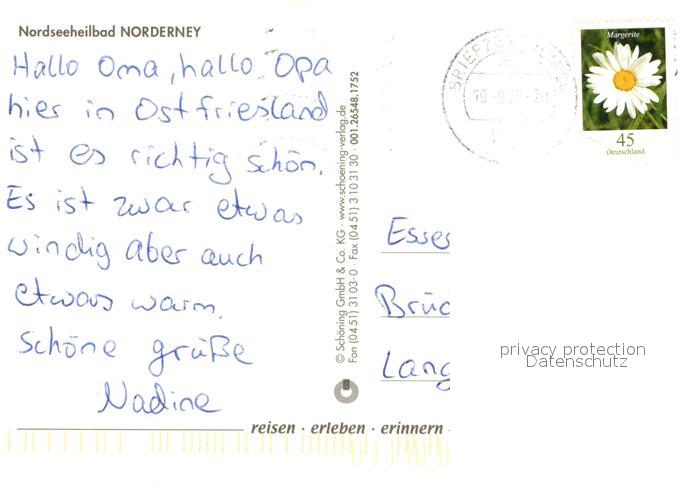 Nordseeheilbad NORDERNEY
Hallo Oma, hallo Opa
hier in Ostfriesland
ist es richtig schön.
Es ist zwar etwas
windig aber auch
etwas warm.
Schöne grüße
Nadine
© Schöning GmbH & Co. KG · www.schoening-verlag.de
Fon (04 51) 31 03-0 · Fax (04 51) 3 10 31 30 · 001.26548.1752
BRIEFZENTRUM
Margerite
45
Deutschland
Esse
Brüc
Lang
privacy protection
Datenschutz
reisen · erleben · erinnern